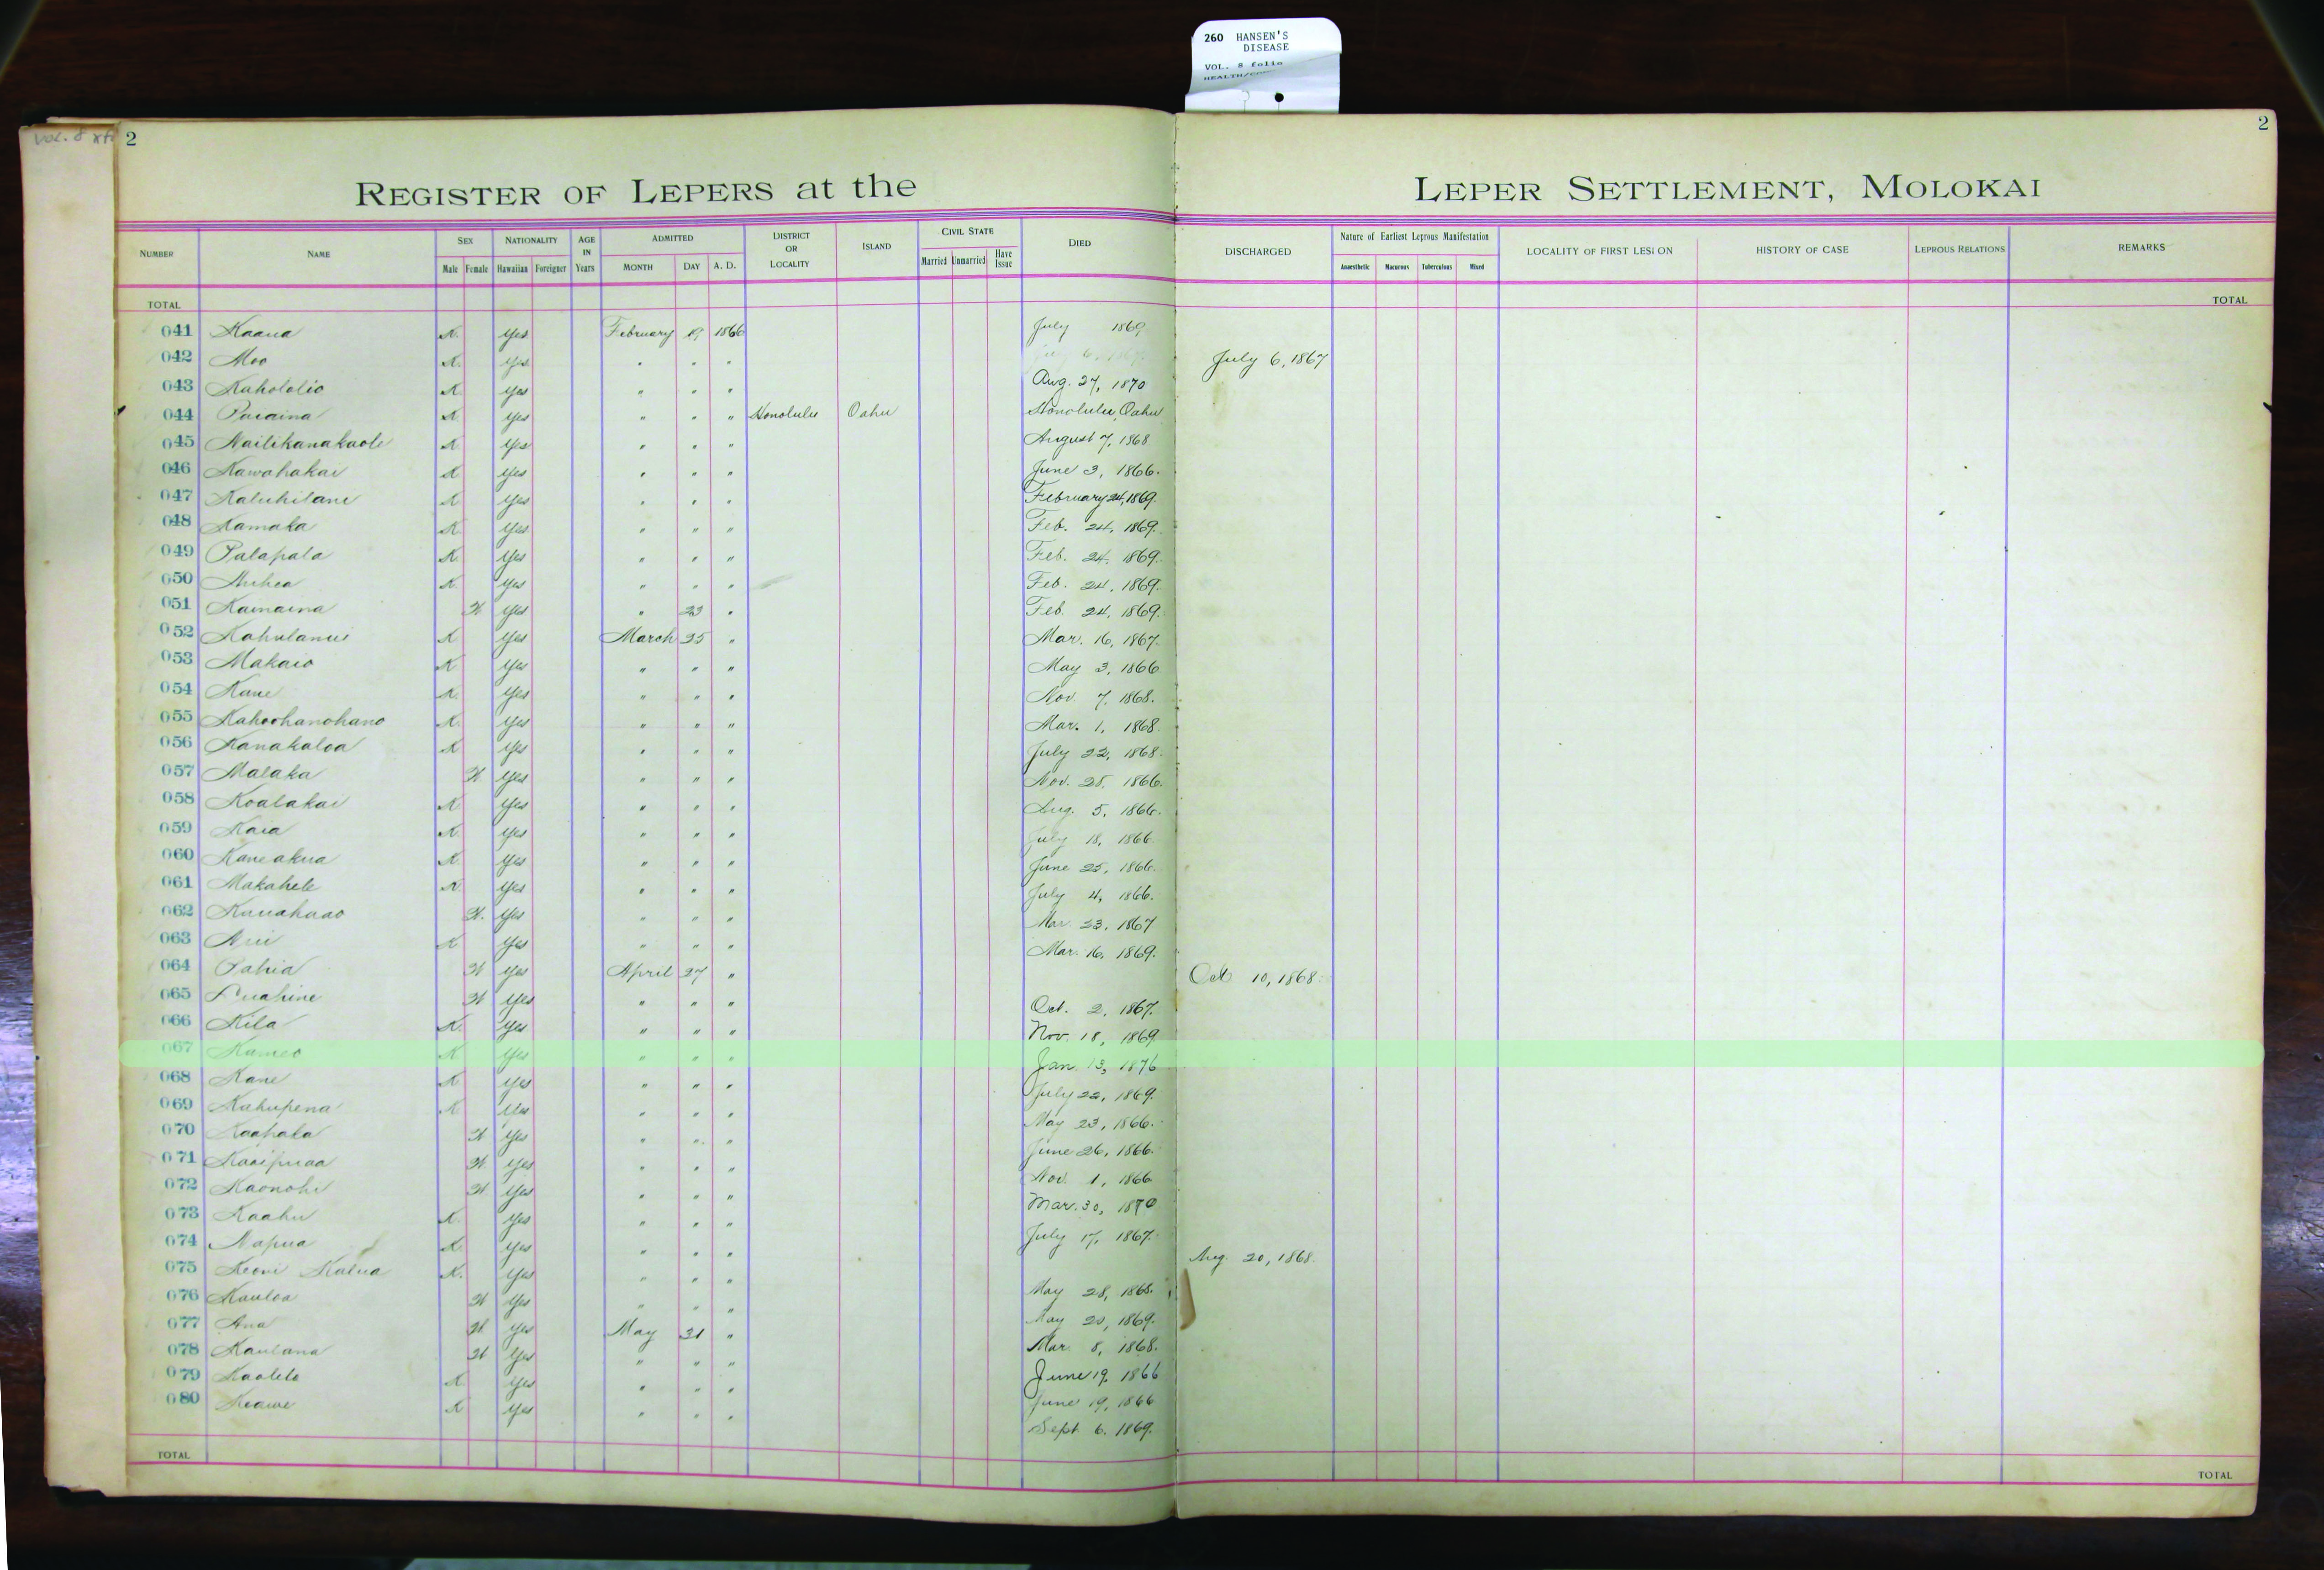 260 HANSEN'S
DISEASE
VOL. 8 folio
Vol. 8
2
2
REGISTER OF LEPERS at the LEPER SETTLEMENT, MOLOKAI
NUMBER NAME SEX Male Female NATIONALITY Hawaiian Foreigner AGE IN Years ADMITTED MONTH DAY A. D. DISTRICT OR LOCALITY ISLAND CIVIL STATE Married Unmarried Have Issue DIED DISCHARGED Nature of Earliest Leprous Manifestation Anaesthetic Macurous Tuberculous Mixed LOCALITY OF FIRST LESION HISTORY OF CASE LEPROUS RELATIONS REMARKS
TOTAL TOTAL
041 Kaaua K. Yes February 19 1866 July 1869
042 Moo K. Yes " " " July 6, 1867
043 Kahololio K Yes " " " Aug. 27, 1870
044 Puaaina K Yes " " " Honolulu Oahu Honolulu, Oahu
045 Nailikanakaole K Yes " " " August 7, 1868
046 Kawahakai K Yes " " " June 3, 1866.
047 Kaluhilani K Yes " " " February 24, 1869.
048 Kamaka K Yes " " " Feb. 24, 1869.
049 Palapala K. Yes " " " Feb. 24, 1869.
050 Auhea K. Yes " " " Feb. 24, 1869.
051 Kamaina W Yes " 23 " Feb. 24, 1869.
052 Kahulanui K Yes March 25 " Mar. 16, 1867.
053 Makaio K Yes " " " May 3, 1866
054 Kane K. Yes " " " Nov. 7, 1868.
055 Kahoohanohano K. Yes " " " Mar. 1, 1868.
056 Kanakaloa K Yes " " " July 22, 1868.
057 Malaka W Yes " " " Nov. 28, 1866.
058 Koalakai K Yes " " " Aug. 5, 1866.
059 Kaia K. Yes " " " July 18, 1866.
060 Kaneakua K. Yes " " " June 25, 1866.
061 Makahele K. Yes " " " July 4, 1866.
062 Kauahaao W. Yes " " " Mar. 23, 1867
063 K Yes " " " Mar. 16, 1869.
064 Pahia W Yes April 27 " Oct 10, 1868.
065 Luahine W Yes " " " Oct. 2, 1867.
066 Kila K. Yes " " " Nov. 18, 1869
067 Kameo K Yes " " " Jan. 13, 1876
068 Kane K Yes " " " July 22, 1869.
069 Kahupena K Yes " " " May 23, 1866.
070 Kaahala W Yes " " " June 26, 1866.
071 Kaaipuaa W. Yes " " " Nov. 1, 1866
072 Kaonohi W Yes " " " Mar. 30, 1870
073 Kaahu K. Yes " " " July 17, 1867.
074 Napua K. Yes " " " Aug. 20, 1868.
075 Keoni Kalua K. Yes " " " May 28, 1868.
076 Kauloa W Yes " " " May 20, 1869.
077 Ana W. Yes May 31 " Mar. 8, 1868.
078 Kaulana W Yes " " " June 19, 1866
079 Kaolelo K. Yes " " " June 19, 1866
080 Keawe K Yes " " " Sept. 6. 1869.
TOTAL TOTAL